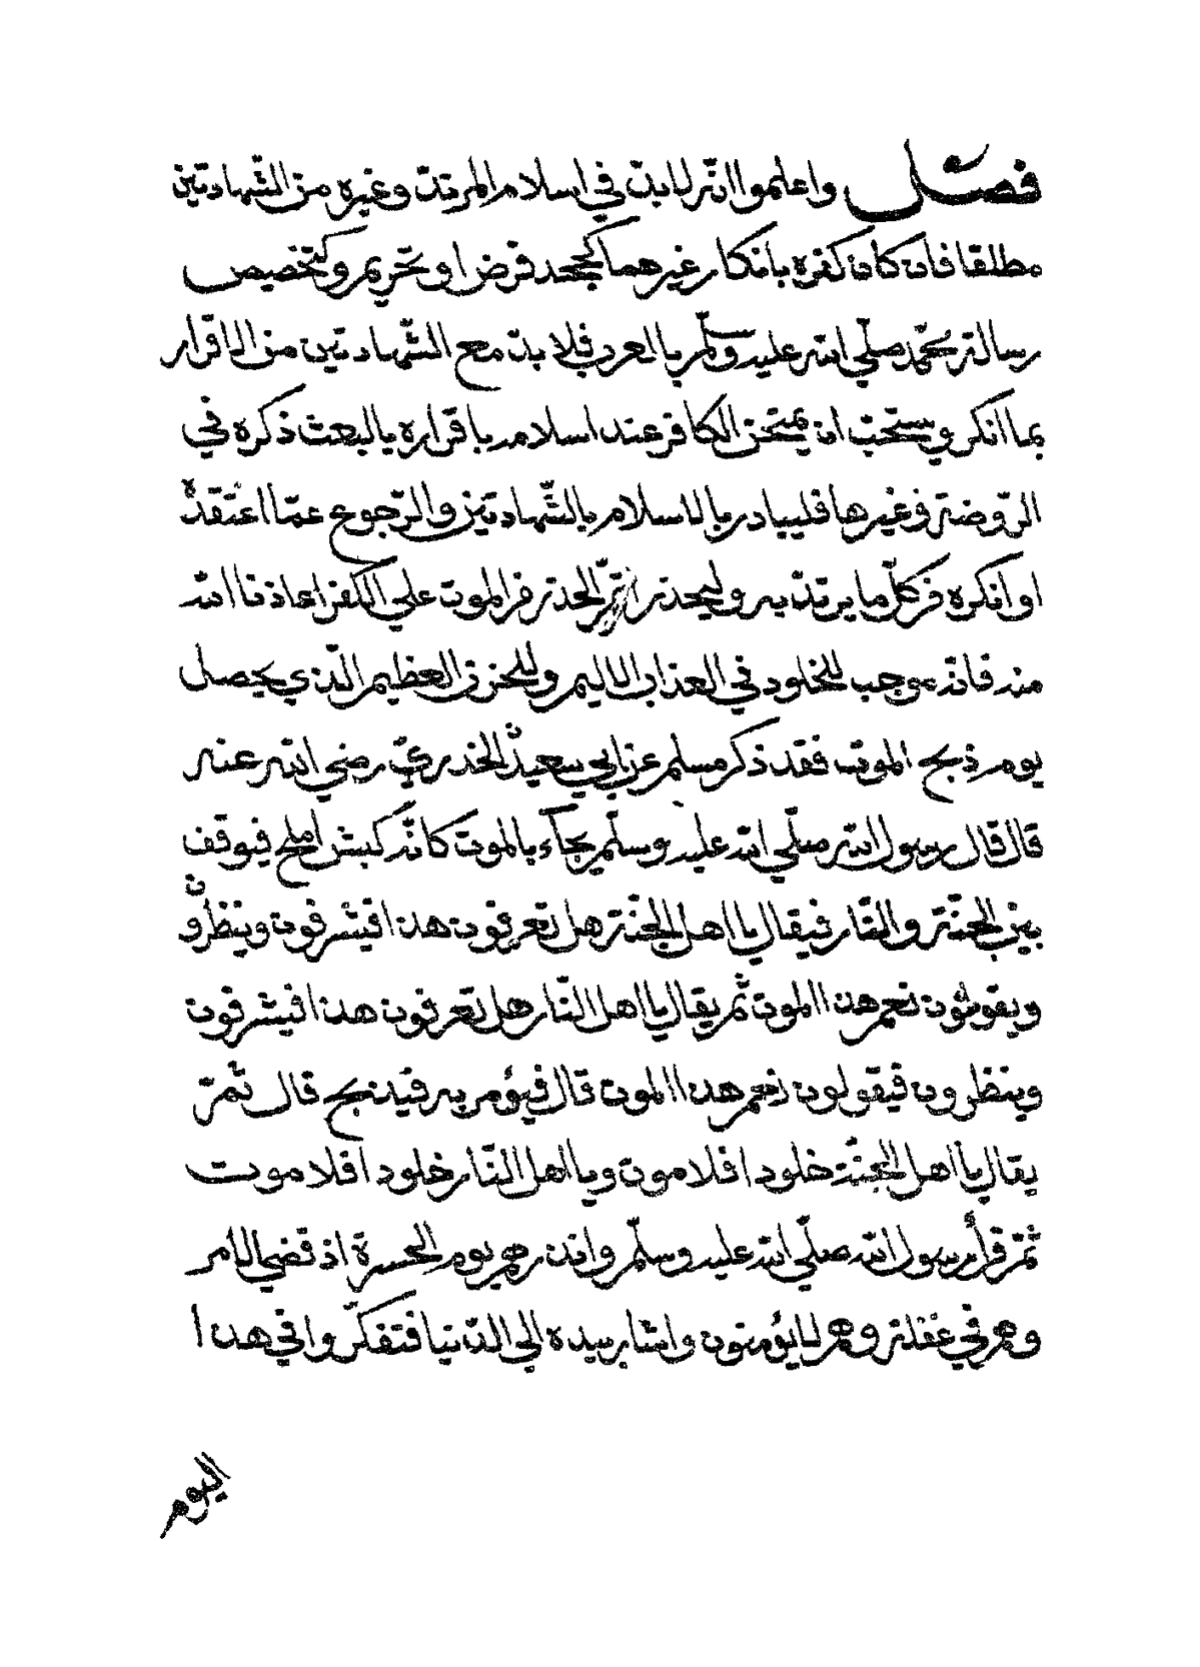 فصل واعلموا انّه لا بدّ في اسلام المرتدّ وغيره من الشّهادتين
مطلقا فان كان كفره بانكار غيرهما كجحد فرض او تحريم وكتخصيص
رسالة محمّد صلّي الله عليه وسلّم بالعرب فلا بدّ مع الشّهادتين من الاقرار
بما انكر ويستحبّ ان يمتحن الكافر عند اسلامه باقراره بالبعث ذكره في
الرّوضة وغيرها فليبادر بالاسلام بالشّهادتين والرّجوع عمّا اعتقده
او انكره من كلّ ما يرتدّ به وليحذر اتمّ الحذر من الموت علي الكفر اعاذنا الله
منه فانّه موجب للخلود في العذاب الاليم وللحزن العظيم الّذي يحصل
يوم ذبح الموت فقد ذكر مسلم عن ابي سعيد ن الخدريّ رضي الله عنه
قال قال رسول الله صلّي الله عليه وسلّم يجآء بالموت كانّه كبش املح فيوقف
بين الجنّة والنّار فيقال يا اهل الجنّة هل تعرفون هذا فيشرفون وينظرون
ويقولون نعم هذا الموت ثم يقال يا اهل النّار هل تعرفون هذا فيشرفون
وينظرون فيقولون نعم هذا الموت قال فيؤمر به فيذبح قال ثمّ
يقال يا اهل الجنّة خلودا فلا موت ويا اهل النّار خلودا فلا موت
ثمّ قرأ رسول الله صلّي الله عليه وسلّم وانذرهم يوم الحسرة اذ قضي الامر
وهم في غفلة وهم لا يؤمنون واشار بيده الي الدّنيا فتفكّروا في هذا
اليوم